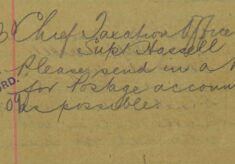 Chief Taxation Office
Supt Hassell
Please send in a
for Postage accoun
as possible.
ORD.
09